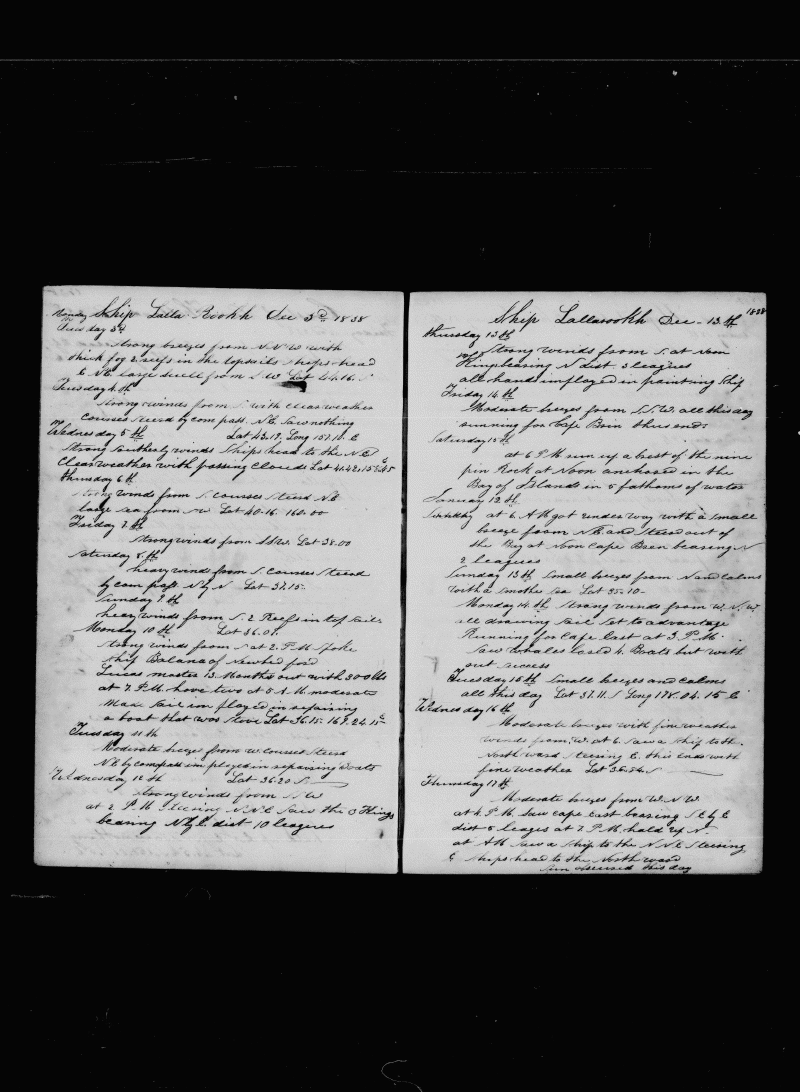 Ship Lalla Rookh Dec 3d 1838
Monday
Tuesday 3d
strong breezes from N.N.W with
thick fog 2 reefs in the topsails ships head
E.N.E. large swell from S.W. Lat 44.16. S
Tuesday 4th
strong winds from S. with clear weather
Courses steerd by compass. N.E. Saw nothing
Wednesday 5th Lat 43.19. Long 157.10. E
Strong Southerly winds Ships head to the N.E
Clear weather with passing Clouds Lat 41.42.
Thursday 6th
strong winds from S. courses steerd N.E
large sea from Lat 40.16. 160.00
Friday 7th
strong winds from SSW. Lat 38.00
Saturday 8th
heavy winds from S. Courses steerd
by compass N by N Lat 37.15.
Sunday 9th
heavy winds from S. 2 Reefs in top sails
Monday 10th Lat 36.01.
strong winds from S at 2. P.M spoke
ship Balana of Newbedford
Lucas master 13 months out with 300 bbls
at 7. P.M. hove two at 5 A.M moderate
Made sail imployed in repairing
a boat that was stove Lat 36.15. 169.24.15 E
Tuesday 11th
Moderate breezes from W. Courses steerd
N.E by compass imployed in repairing boats
Wednesday 12th Lat 36.20 S.
strong winds from S.W
at 2 P.M steering N.N.E saw the 3 Kings
bearing N by E. dist 10 leagues
Ship Lallarookh Dec - 13.th 1838
Thursday 13th
strong winds from S. at Noon
3 Kings bearing N dist. 3 leagues
all hands imployed in painting ship
Friday 14th
Moderate breezes from S.S.W. all this day
running for Cape Brin thus ends
Saturday 15th
at 6 P.M run up a brest of the nine
pin Rock at Noon anchored in the
Bay of Islands in 5 fathoms of water
January 12th
Saturday at 6. A.M got under way with a small
breeze from N.E. and steerd out of
the Bay at Noon Cape Breen bearing N
2 leagues
Sunday 13th small breezes from N and calms
with a smothe sea Lat 35.10-
Monday 14th strong winds from W.N.W.
all drawing sail set to advantage
Running for Cape East at 3 P.M.
saw whales lored 4 Boats but with
out success
Tuesday 15th small breezes and calms
all this day Lat 37.11. S Long 178.04.15 E
Wednesday 16th
Moderate breezes with fine weather
winds from W. at 6. saw a ship to the
North ward steering E. this ends with
fine weather Lat 36.54. S
Thursday 17th
Moderate breezes from W.N.W.
at 4 P.M. saw cape East bearing S.E by E
dist 5 leages at 7 P.M. hald up N.
at AM saw a ship to the N.N.E steering
E ships head to the North ward
sun obscured this day